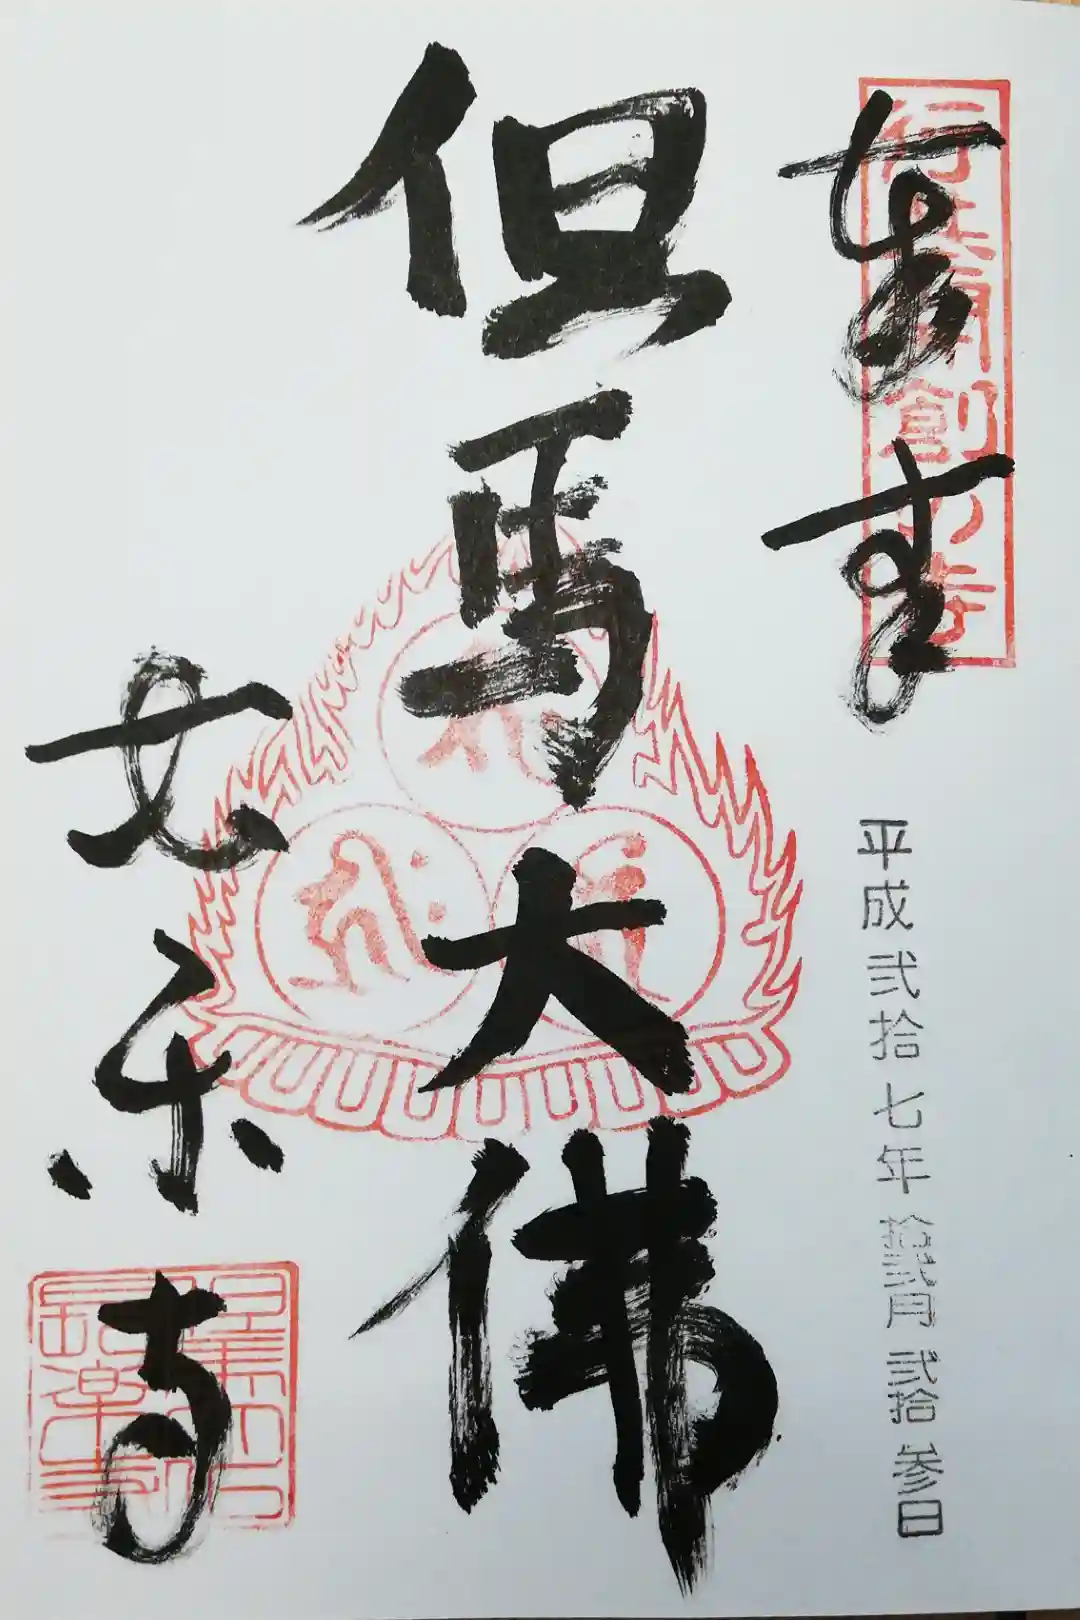 奉拝
行基菩薩創の寺
平成弐拾七年拾弐月弐拾参日
但馬大佛
長楽寺